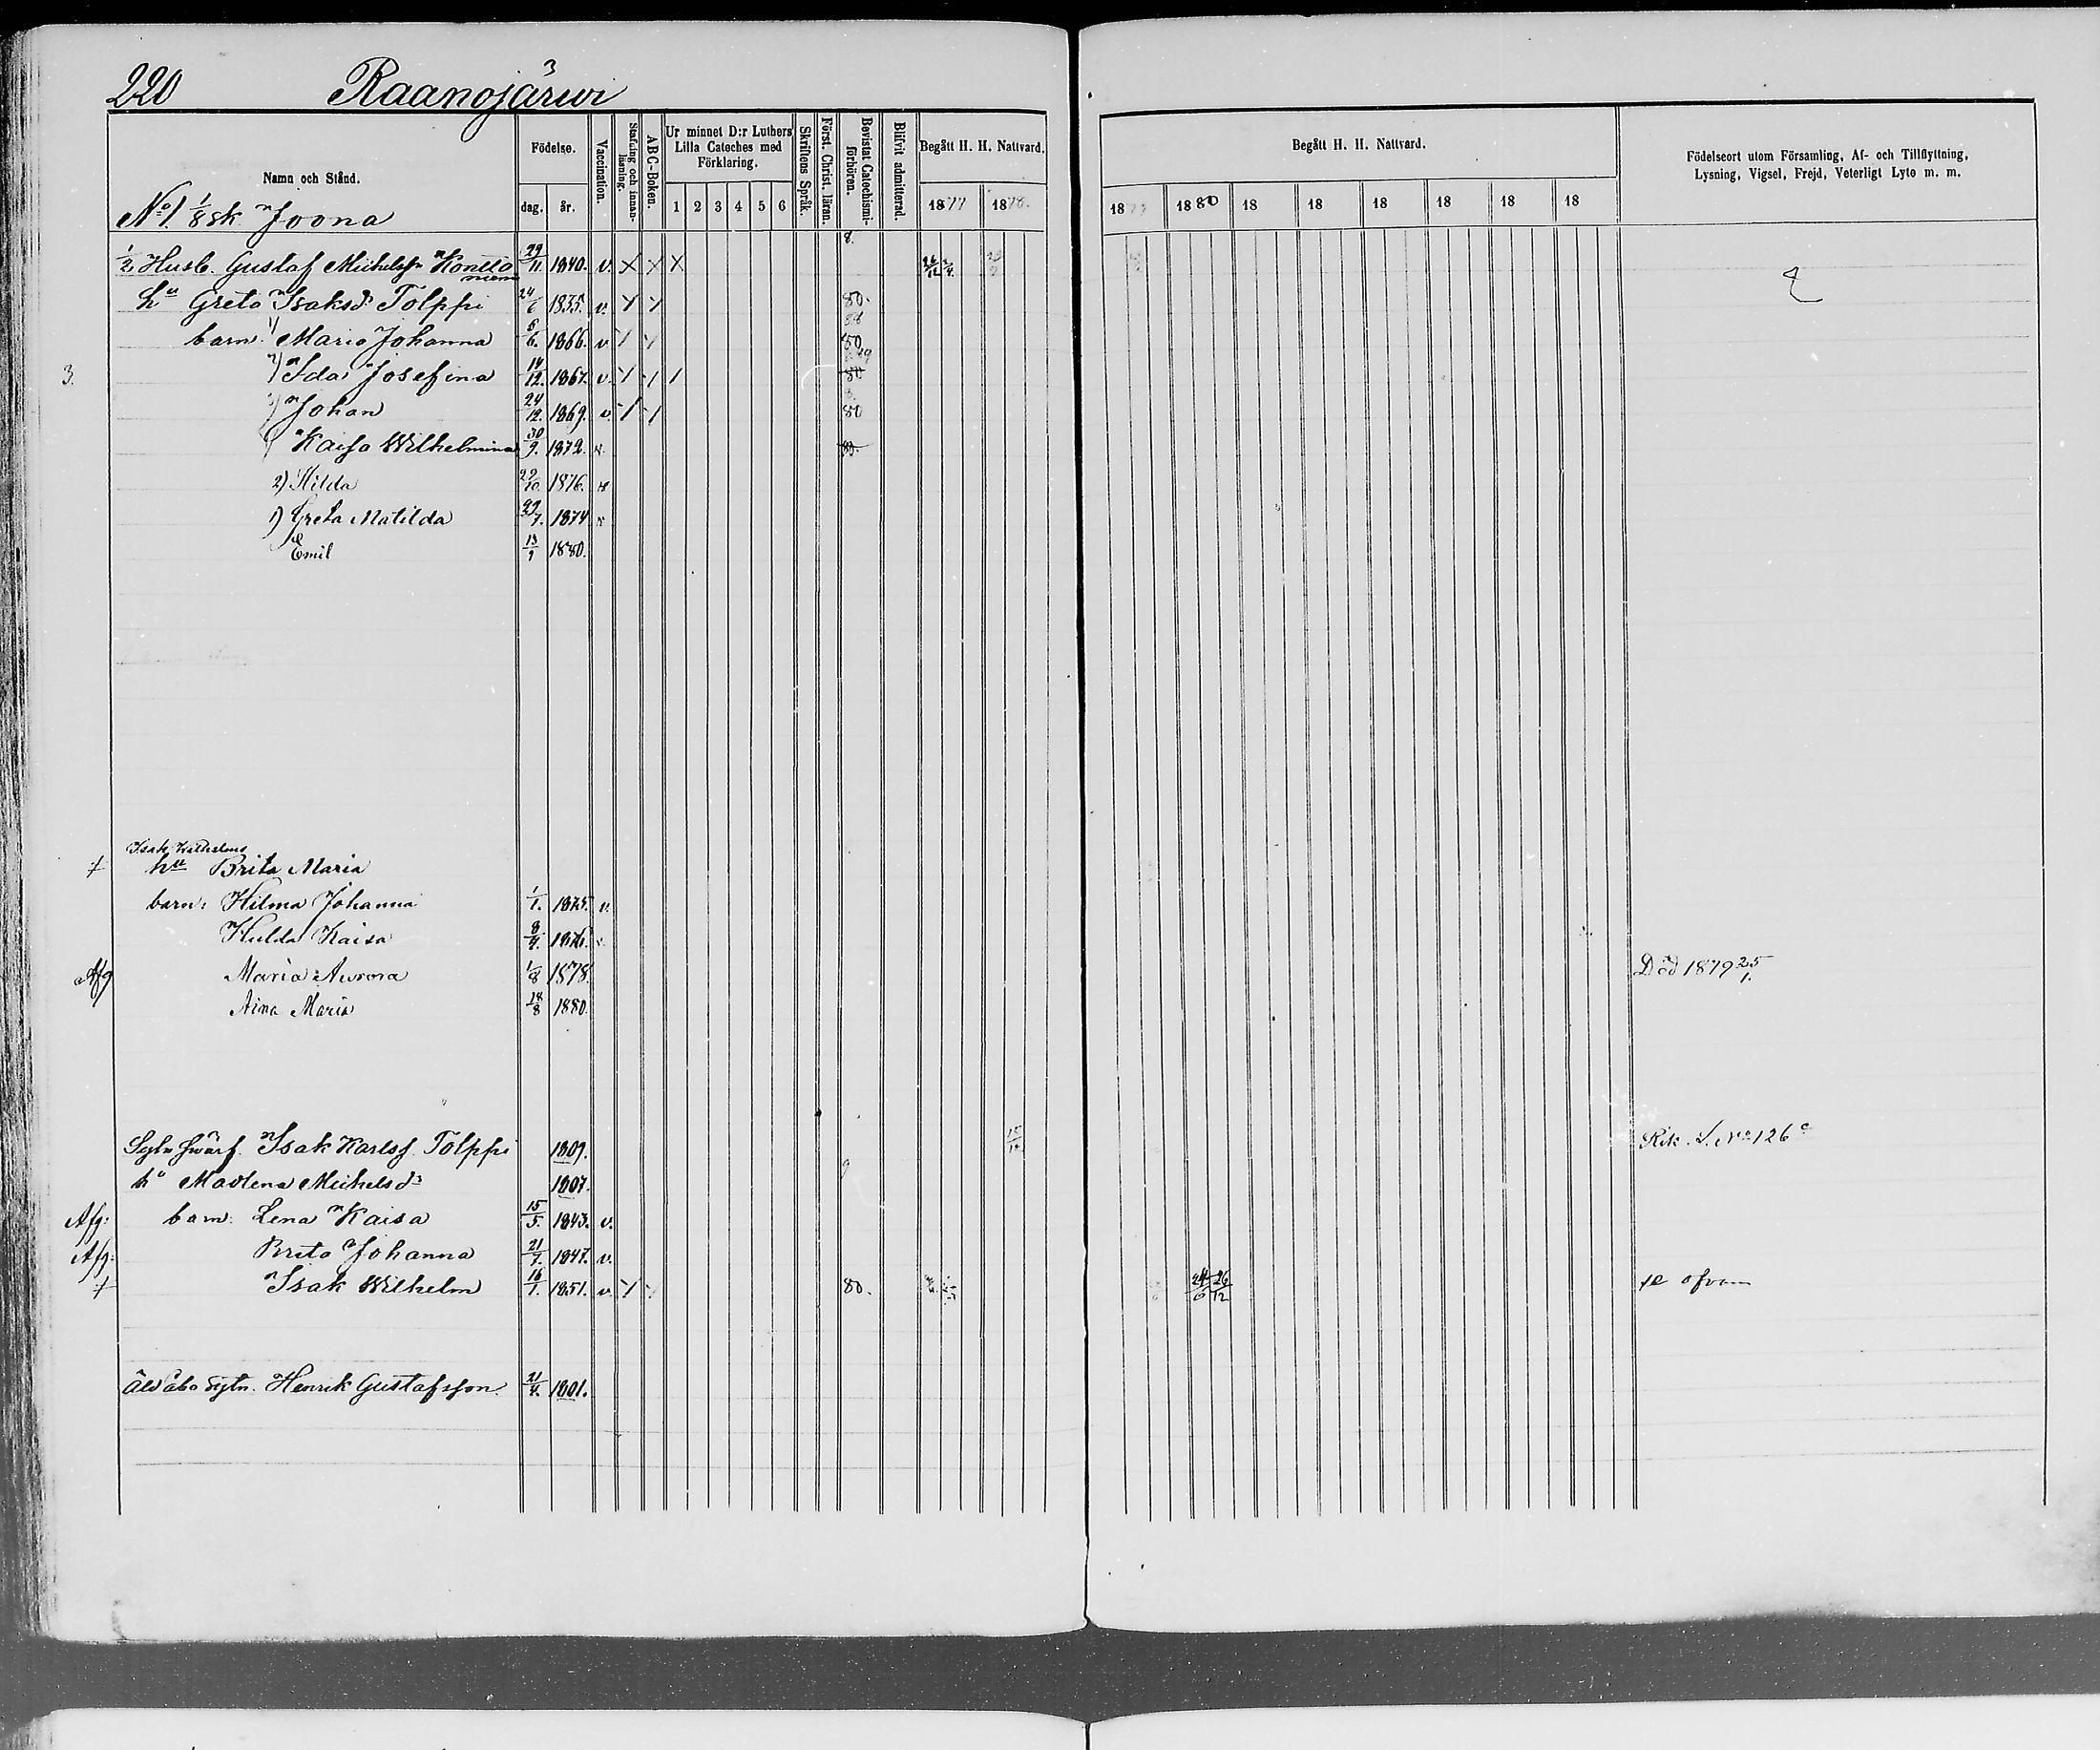 220 Raanojärwi
Namn och Stånd.
Födelse.
dag. år.
Vaccination.
Stafning och innan-läsning.
ABC-Boken.
Ur minnet D:r Luthers Lilla Cateches med Förklaring.
1 2 3 4 5 6
Skriftens Språk.
Först. Christ. läran.
Bevistat Catechismi-förhören.
Blifvit admitterad.
Begått H. H. Nattvard.
1877 1878.
Begått H. H. Nattvard.
1879 1880 18 18 18 18 18 18
Födelseort utom Församling, Af- och Tillflyttning,
Lysning, Vigsel, Frejd, Veterligt Lyte m. m.
No 1. 1/8 sk. Joona
8.
1/2 Husb. Gustaf Michelss. Kontto niemi 29/11. 1840. v. X X X
hu Greta Isaksdr Tolppi 24/6 1835. v. 80.
barn: 1) Maria Johanna 6. 1866. v 80
3. 2) Ida Josefina 14/12. 1867. v. 80
3) Johan 24/12. 1869. v. 80
Kaisa Wilhelmina 30/9. 1872. v.
2) Hilda 29/10 1876.
1) Greta Matilda 29/7. 1874
Emil 13/9 1880.
Isak Wilhelms
hu Brita Maria
barn: Hilma Johanna 1/1. 1875. v.
Hulda Kaisa 8/4. 1876. v.
Afg Maria Aurora 1/8 1878. Död 1879 25/1.
Aina Maria 18/8 1880.
Isak Karlss. Tolppi 1809. Rik. S. No 126
hu Madlena Michelsdr 1807.
Afg: barn: Lena Kaisa 15/5. 1843. v.
Afg: Brita Johanna 21/7. 1847. v.
Isak Wilhelm 16/1. 1851. v. 80. 24/6 26/12 se ofvan
Åld åbo sytn. Henrik Gustafsson. 21/4. 1801.